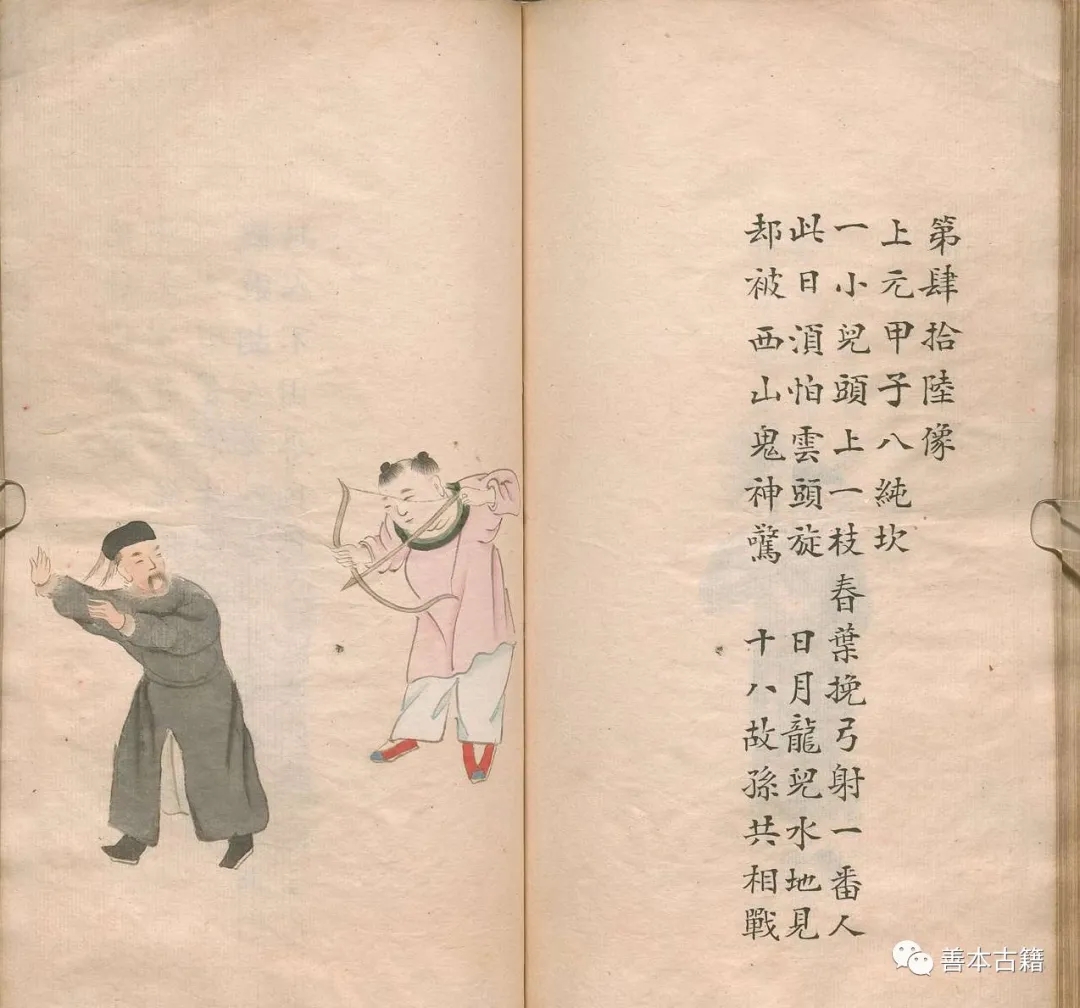 第肆拾陸像
上元甲子八純坎
一小兒頭上一枝春葉挽弓射一番人
此日湏怕雲頭旋 日月龍兒水地見
却被西山鬼神驚 十八故孫共相戰
善本古籍